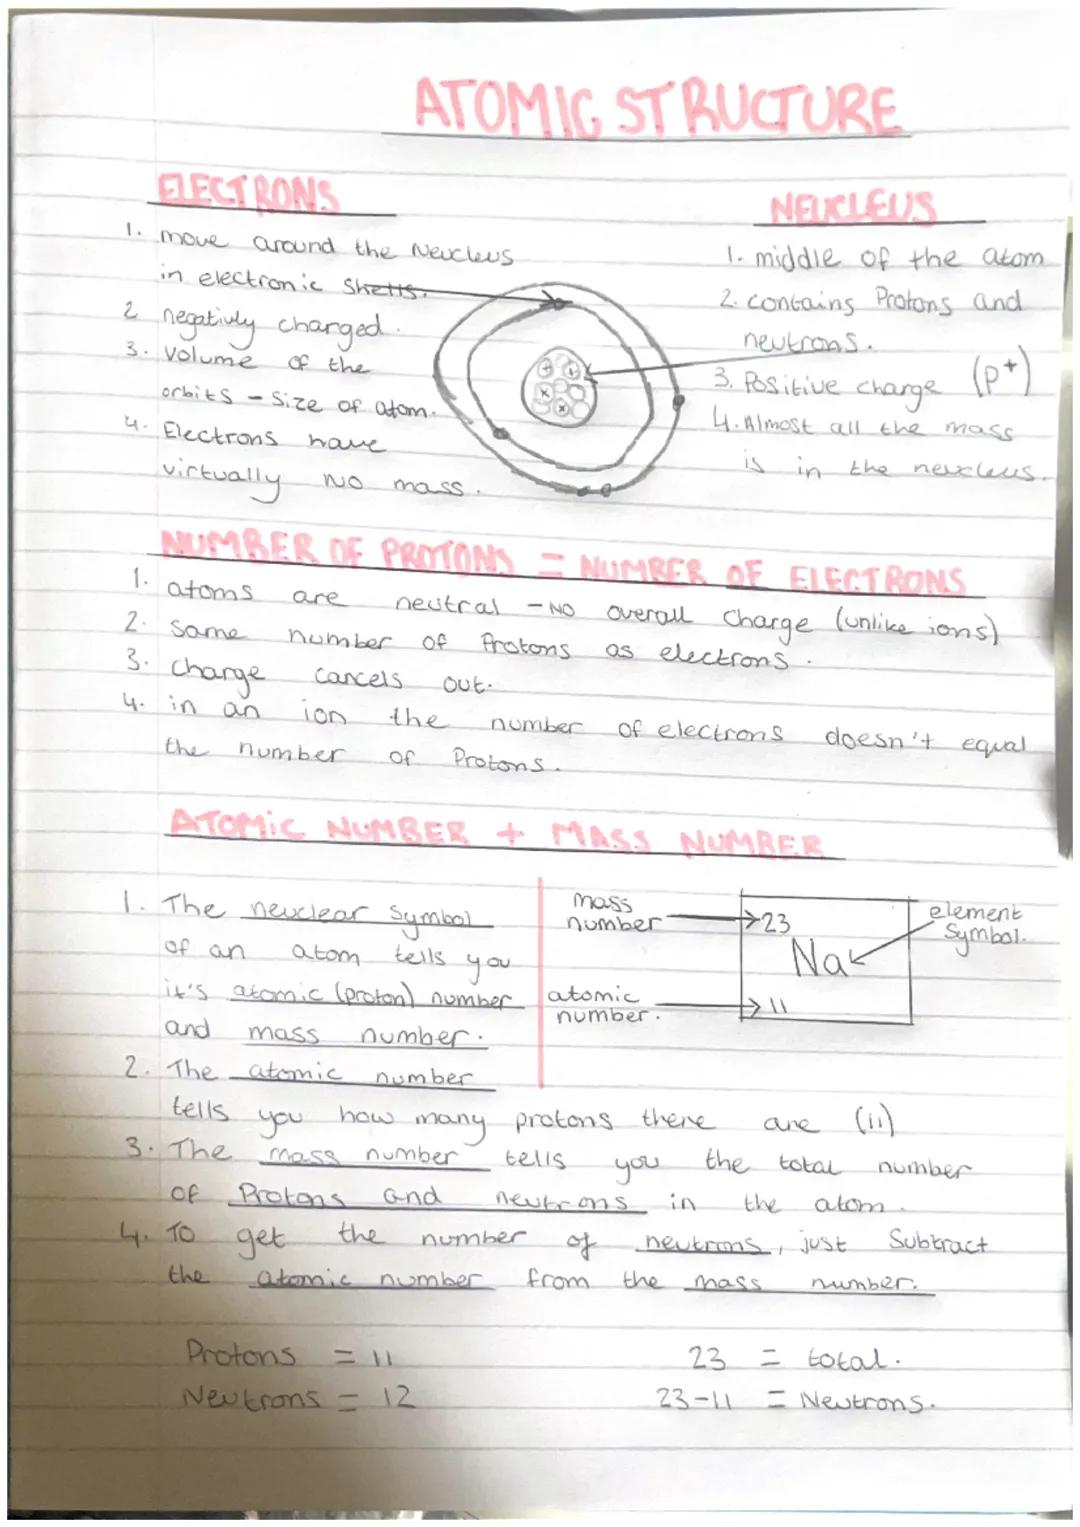 ATOMIC STRUCTURE
ELECTRONS
1. move around the Neucleus
in electronic shells.
2 negativly charged.
3. Volume of the
orbits - Size of atom.
4. Electrons have
virtually no mass.
NEUCLEUS
1. middle of the atom
2. contains Protons and
neutrons.
3. Positive charge (p+)
4. Almost all the mass
is in the neucleus.
NUMBER OF PROTONS = NUMBER OF ELECTRONS
1. atoms are neutral - No overall charge (unlike ions)
2. Same number of Protons as electrons.
3. Charge cancels out.
4. in an ion the number of electrons doesn't equal
the number of Protons.
ATOMIC NUMBER + MASS NUMBER
1. The neuclear symbol
of an atom tells you
it's atomic (proton) number
and mass number.
mass
number
23
Na
element
Symbol.
atomic
number.
11
2. The atomic number
tells you how many protons there are (11)
3. The mass number tells you the total number
of Protons and neutrons in the atom.
4. To get the number of neutrons, just Subtract
the atomic number from the mass number.
Protons = 11
Neutrons = 12
23 = total.
23-11 = Neutrons.